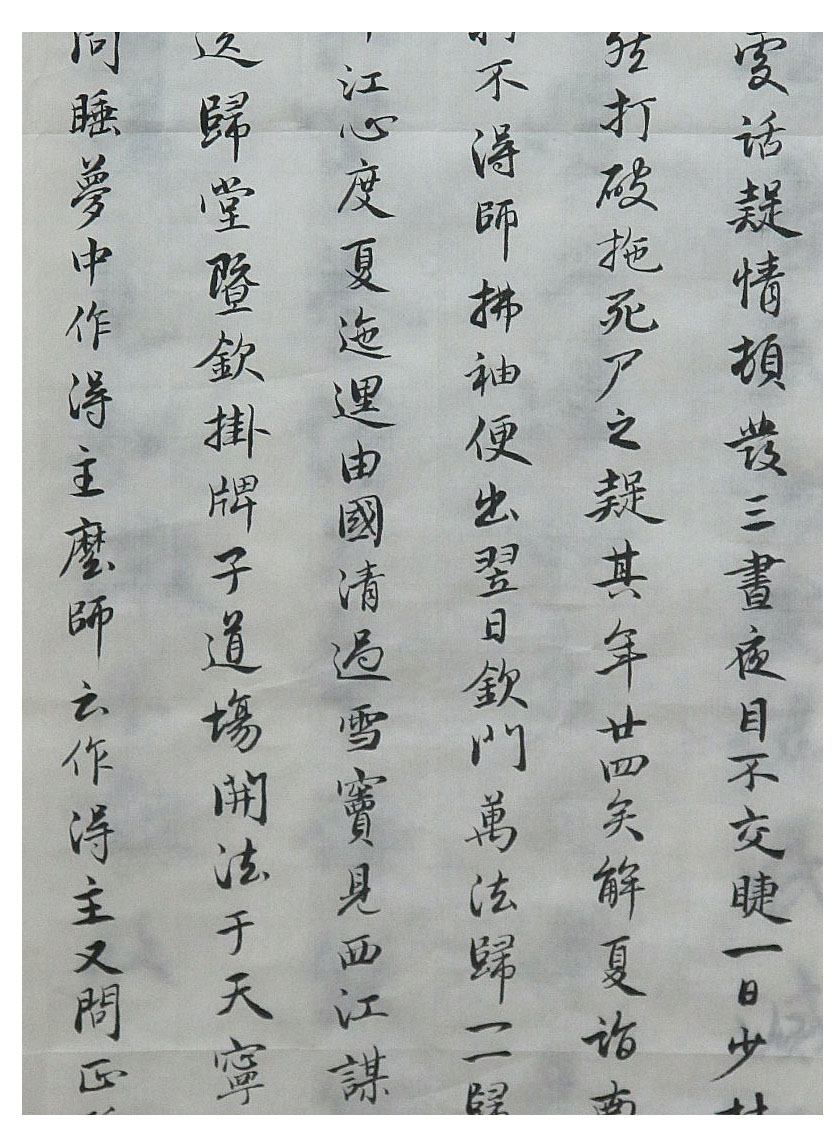 處話疑情頓發三晝夜目不交睫一日少林
然打破拖死尸之疑其年廿四矣解夏詣南
不得師拂袖便出翌日欽門萬法歸一一歸
江心度夏迤邐由國清過雪竇見西江謀
送歸堂暨欽掛牌子道場開法于天寧
問睡夢中作得主麼師云作得主又問正